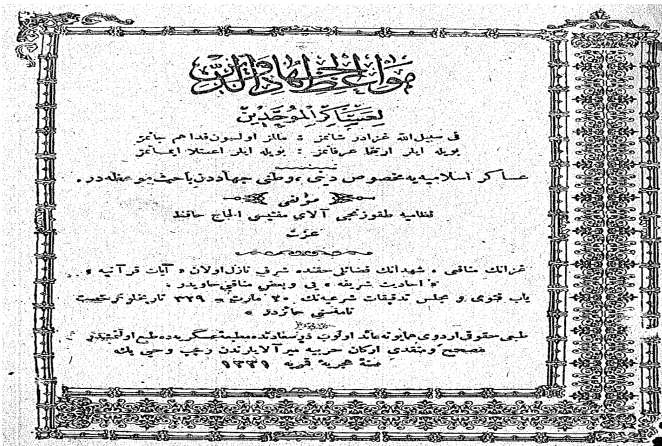 مواعظ الجهاد والدين
لعساكر الموحدين
فى سبيل الله غزادر شانمز : مالمز اولسون فدا هم جانمز
بويله ايلر اوتها عرفانمز : بويله ايلر اعتلا ايمانمز
عساكر اسلاميه يه مخصوص دينى ، وطنى جهاددن باحث موعظه در .
مؤلفى
نظاميه طقوزنجى آلاى مفتيسى الحاج حافظ
عزت
غزانك منافعى ، شهدانك فضائلى حقنده شرف نازل اولان « آيات قرآنيه »
« احاديث شريفه » يى و بعض مناقبى حاويدر .
باب فتوى و مجلس تدقيقات شرعيه نك ٣٠ مارت ٣٢٩ تاريخلو رخصت
نامه سنى حائزدر
طبعى حقوقى اردوى همايونه عائد اولوب درسعادتده مطبعه عسكريه ده طبع اولنمشدر
مصحح و منقدى اركان حربيه ميرآلايلرندن رجب وحى بك
سنه هجريه قمريه ١٣٣١